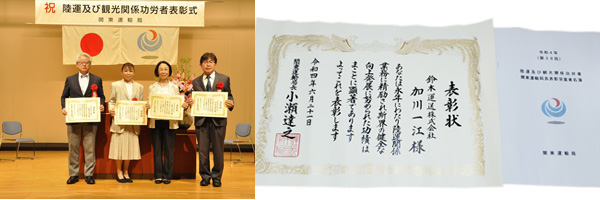 祝 陸運及び観光関係功労者表彰式
関東運輸局
表彰状
鈴木運送株式会社
加川一江 様
あなたは永年にわたり陸運関係
業務に精励され斯界の健全な
向上発展に努められた功績は
まことに顕著であります
よってこれを表彰します
令和四年六月二十一日
関東運輸局長 小瀬達之
令和4年
陸運及び観光関係功労者
関東運輸局長表彰受賞者名簿
関東運輸局